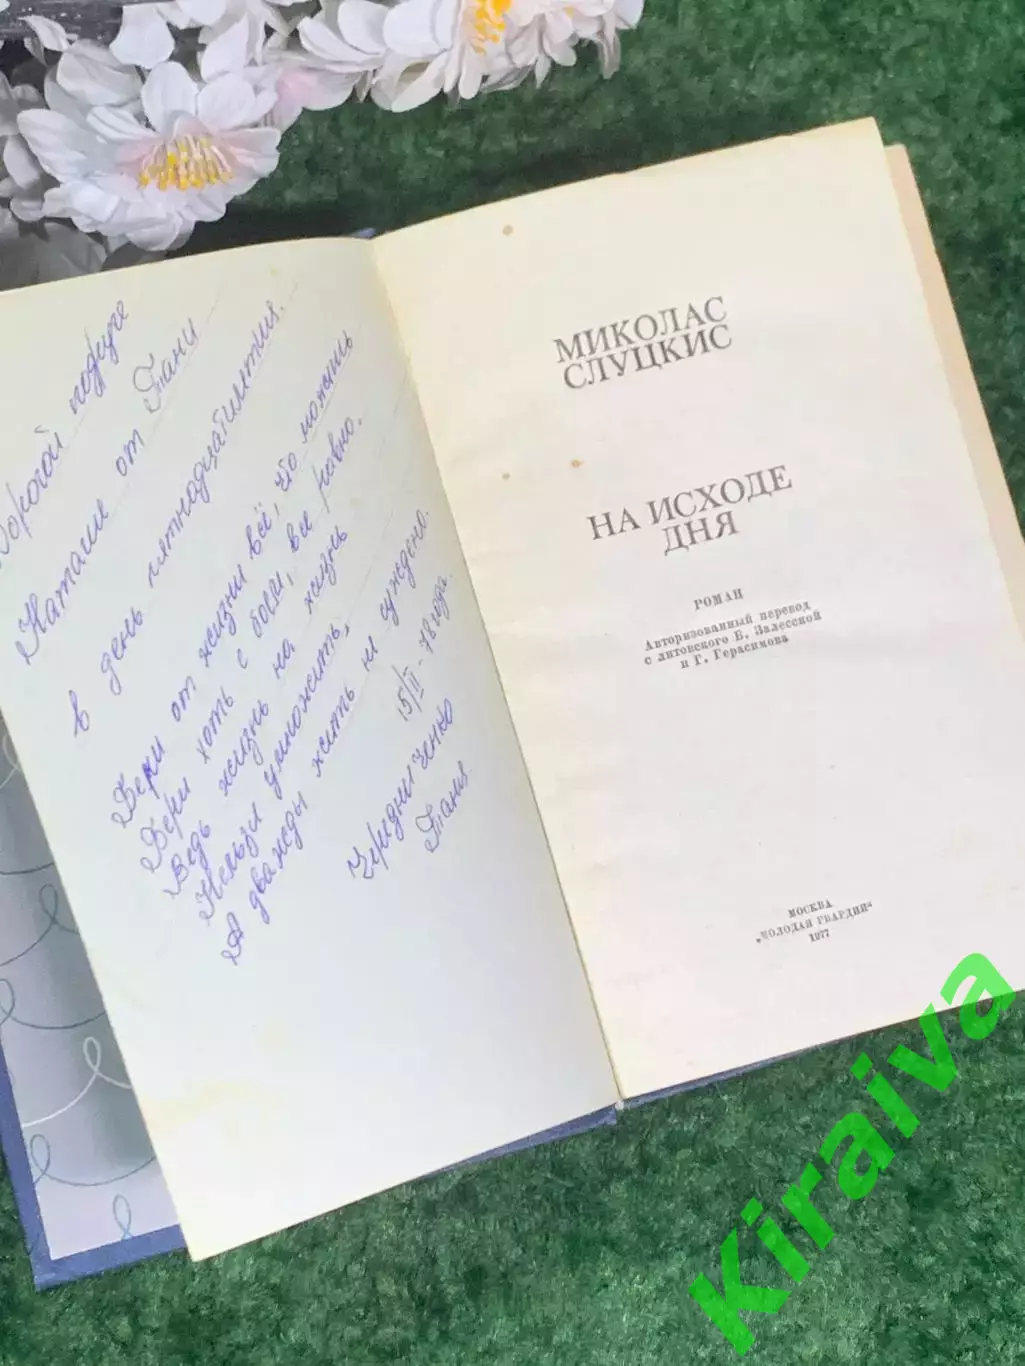 Дорогой подруге
Наташе от Тани
в день пятнадцатилетия.
Бери от жизни всё, что можешь
Бери хоть с боем, все равно.
Ведь жизнь на жизнь
Нельзя умножить,
А дважды жить не суждено.
15/II-78 года.
Таня
МИКОЛАС
СЛУЦКИС
НА ИСХОДЕ
ДНЯ
РОМАН
Авторизованный перевод
с литовского Б. Залесской
и Г. Герасимова
МОСКВА
„МОЛОДАЯ ГВАРДИЯ“
1977
Kiraiva